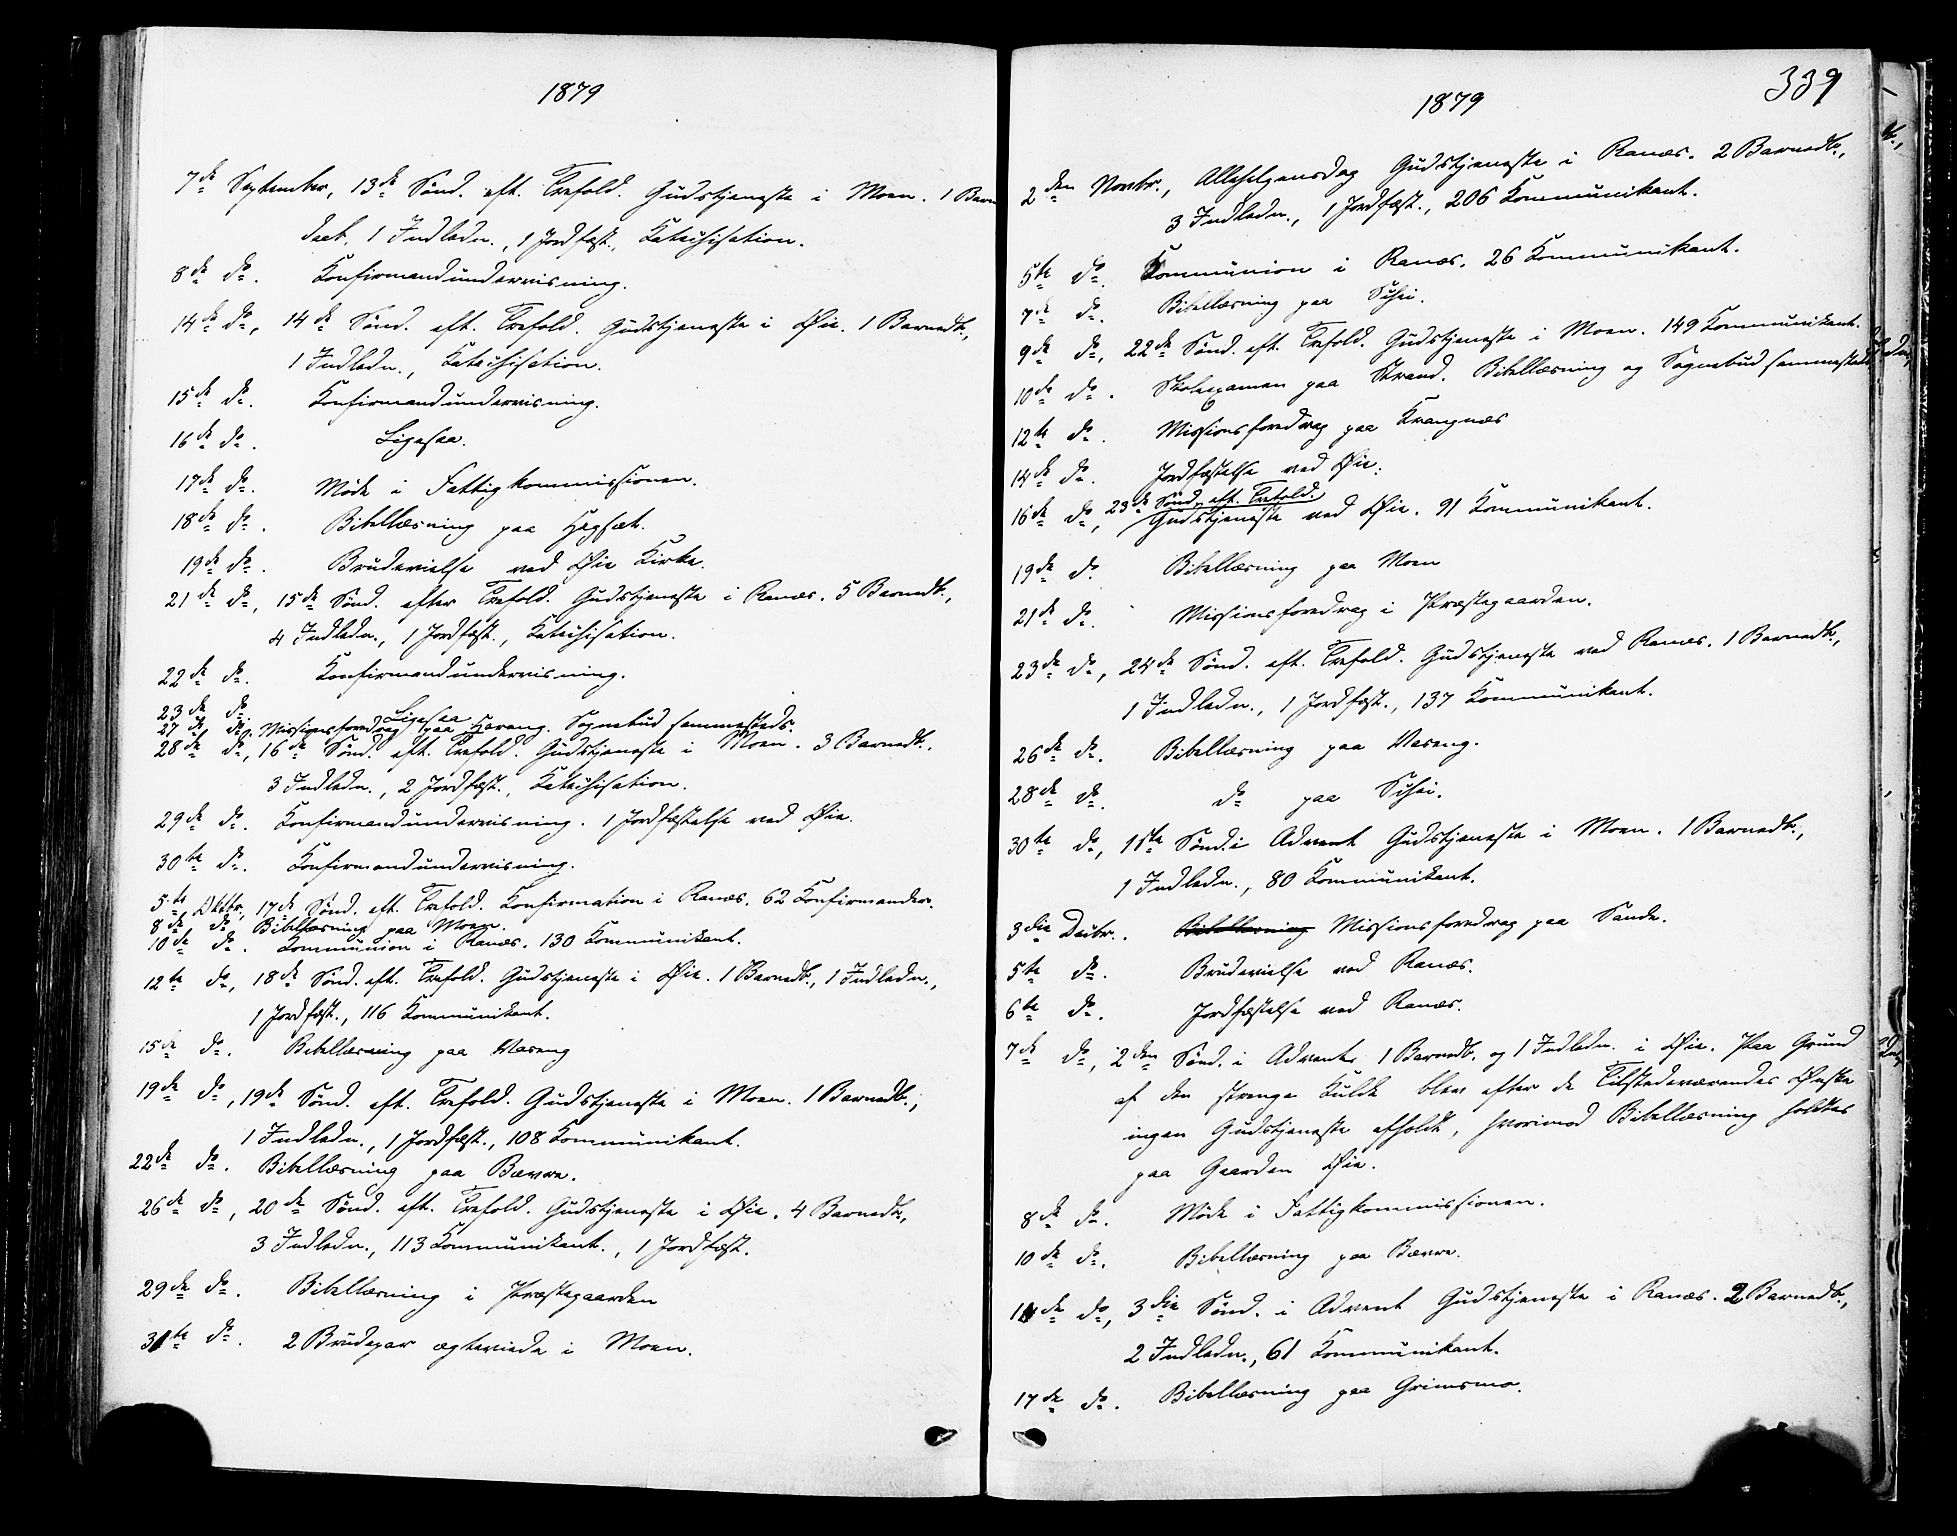 1879
7de September, 13de Sønd. eft. Trefold. Gudstjeneste i Moen. 1 Barne
daab, 1 Indledn., 1 Jordfæst., Katechisation.
8de do. Konfirmandundervisning.
14de do, 14de Sønd. eft. Trefold. Gudstjeneste i Øie. 1 Barnedb.,
1 Indledn., Katechisation.
15de do. Konfirmandundervisning.
16de do. Ligesaa.
17de do. Møde i Fattigkommissionen.
18de do. Bibellæsning paa Hegsæt.
19de do. Brudevielse ved Øie Kirke.
21de do, 15de Sønd. efter Trefold. Gudstjeneste i Ranæs. 5 Barnedb.,
4 Indledn., 1 Jordfæst., Katechisation.
22de do. Konfirmandundervisning.
23de do. Ligesaa
27de do. Missionsforedrag paa Harang. Sognebud sammesteds.
28de do, 16de Sønd. eft. Trefold. Gudstjeneste i Moen. 3 Barnedb.,
3 Indledn., 2 Jordfæst., Katechisation.
29de do. Konfirmandundervisning. 1 Jordfæstelse ved Øie.
30te do. Konfirmandundervisning.
5te Oktbr, 17de Sønd. eft. Trefold. Konfirmation i Ranæs. 62 Konfirmander.
8de do Bibellæsning paa Moen.
10de do. Kommunion i Ranæs. 130 Kommunikant.
12te do, 18de Sønd. eft. Trefold. Gudstjeneste i Øie. 1 Barnedb., 1 Indledn.,
1 Jordfæst., 116 Kommunikant.
15de do. Bibellæsning paa Vaseng
19de do, 19de Sønd. eft. Trefold. Gudstjeneste i Moen. 1 Barnedb.,
1 Indledn., 1 Jordfæst., 108 Kommunikant.
22de do. Bibellæsning paa Bævre.
26de do, 20de Sønd. eft. Trefold. Gudstjeneste i Øie. 4 Barnedb.,
3 Indledn., 113 Kommunikant., 1 Jordfæst.
29de do. Bibellæsning i Præstegaarden
31te do. 2 Brudepar ægteviede i Moen.
1879
339
2den Novbr., Allehelgensdag Gudstjeneste i Ranæs. 2 Barnedb.,
3 Indledn., 1 Jordfæst., 206 Kommunikant.
5te do. Kommunion i Ranæs. 26 Kommunikant.
7de do. Bibellæsning paa
9de do, 22de Sønd. eft. Trefold. Gudstjeneste i Moen. 149 Kommunikant.
10de do. Skolexamen paa Strand. Bibellæsning og Sognebud sammesteds
12te do. Missionsforedrag paa Kvangnæs
14de do. Jordfæstelse ved Øie.
16de do, 23de Sønd. eft. Trefold.
Gudstjeneste ved Øie. 91 Kommunikant.
19de do. Bibellæsning paa Moen
21de do. Missionsforedrag i Præstegaarden.
23de do, 24de Sønd. eft. Trefold. Gudstjeneste ved Ranæs. 1 Barnedb.,
1 Indledn., 1 Jordfæst., 137 Kommunikant.
26de do. Bibellæsning paa Vaseng.
28de do. do paa
30te do, 1ste Sønd. i Advent Gudstjeneste i Moen. 1 Barnedb.,
1 Indledn., 80 Kommunikant.
3die Decbr. Bibellæsning Missionsforedrag paa Sande.
5te do. Brudevielse ved Ranæs.
6te do. Jordfæstelse ved Ranæs.
7de do, 2den Sønd. i Advent 1 Barnedb. og 1 Indledn. i Øie. Paa Grund
af den strenge Kulde blev efter de Tilstedeværendes Ønske
ingen Gudstjeneste afholdt, hvorimod Bibellæsning holdtes
paa Gaarden Øie.
8de do. Møde i Fattigkommissionen.
10de do. Bibellæsning paa Bævre.
14de do, 3die Sønd. i Advent Gudstjeneste i Ranæs. 2 Barnedb.,
2 Indledn., 61 Kommunikant.
17de do. Bibellæsning paa Grimsmo.